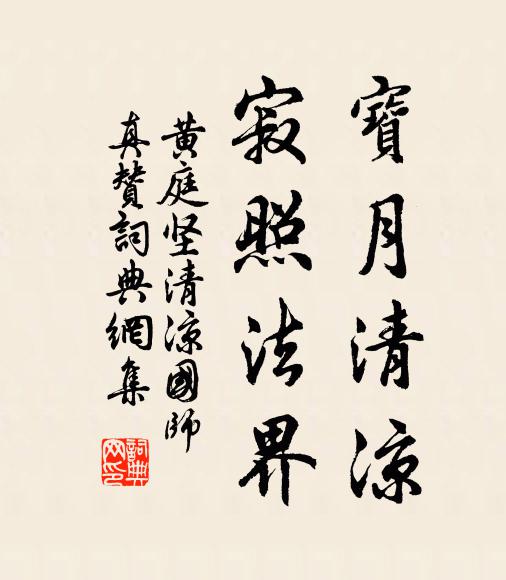 寶月清涼
寂照法界
黄庭坚清涼國師
真賛詞典網集
詞典
网印